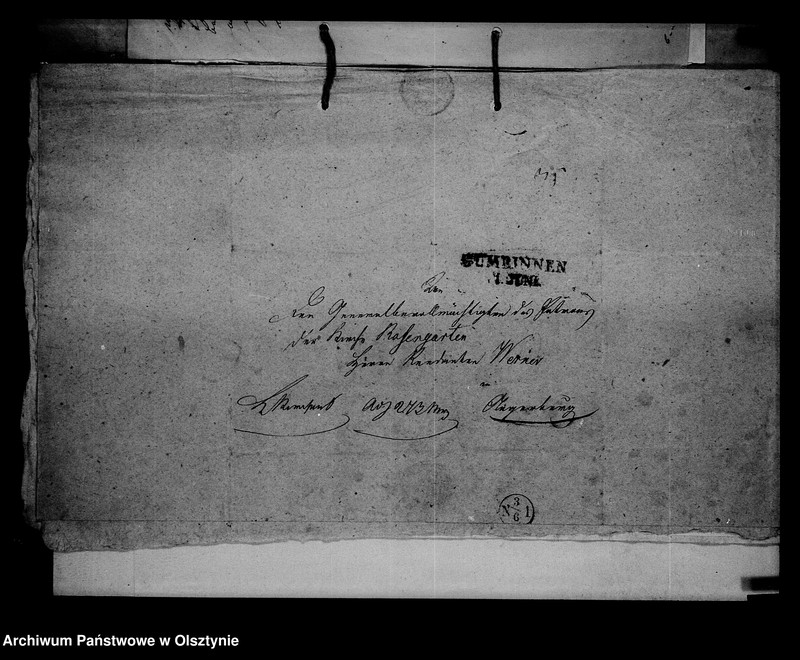 GUMBINNEN
1. JUNI.
An
den Generalbevollmächtigten des Patrons
der Kirche Rosengarten
Herrn Rendanten Werner
in
Angerburg
N 3/6 1
Archiwum Państwowe w Olsztynie